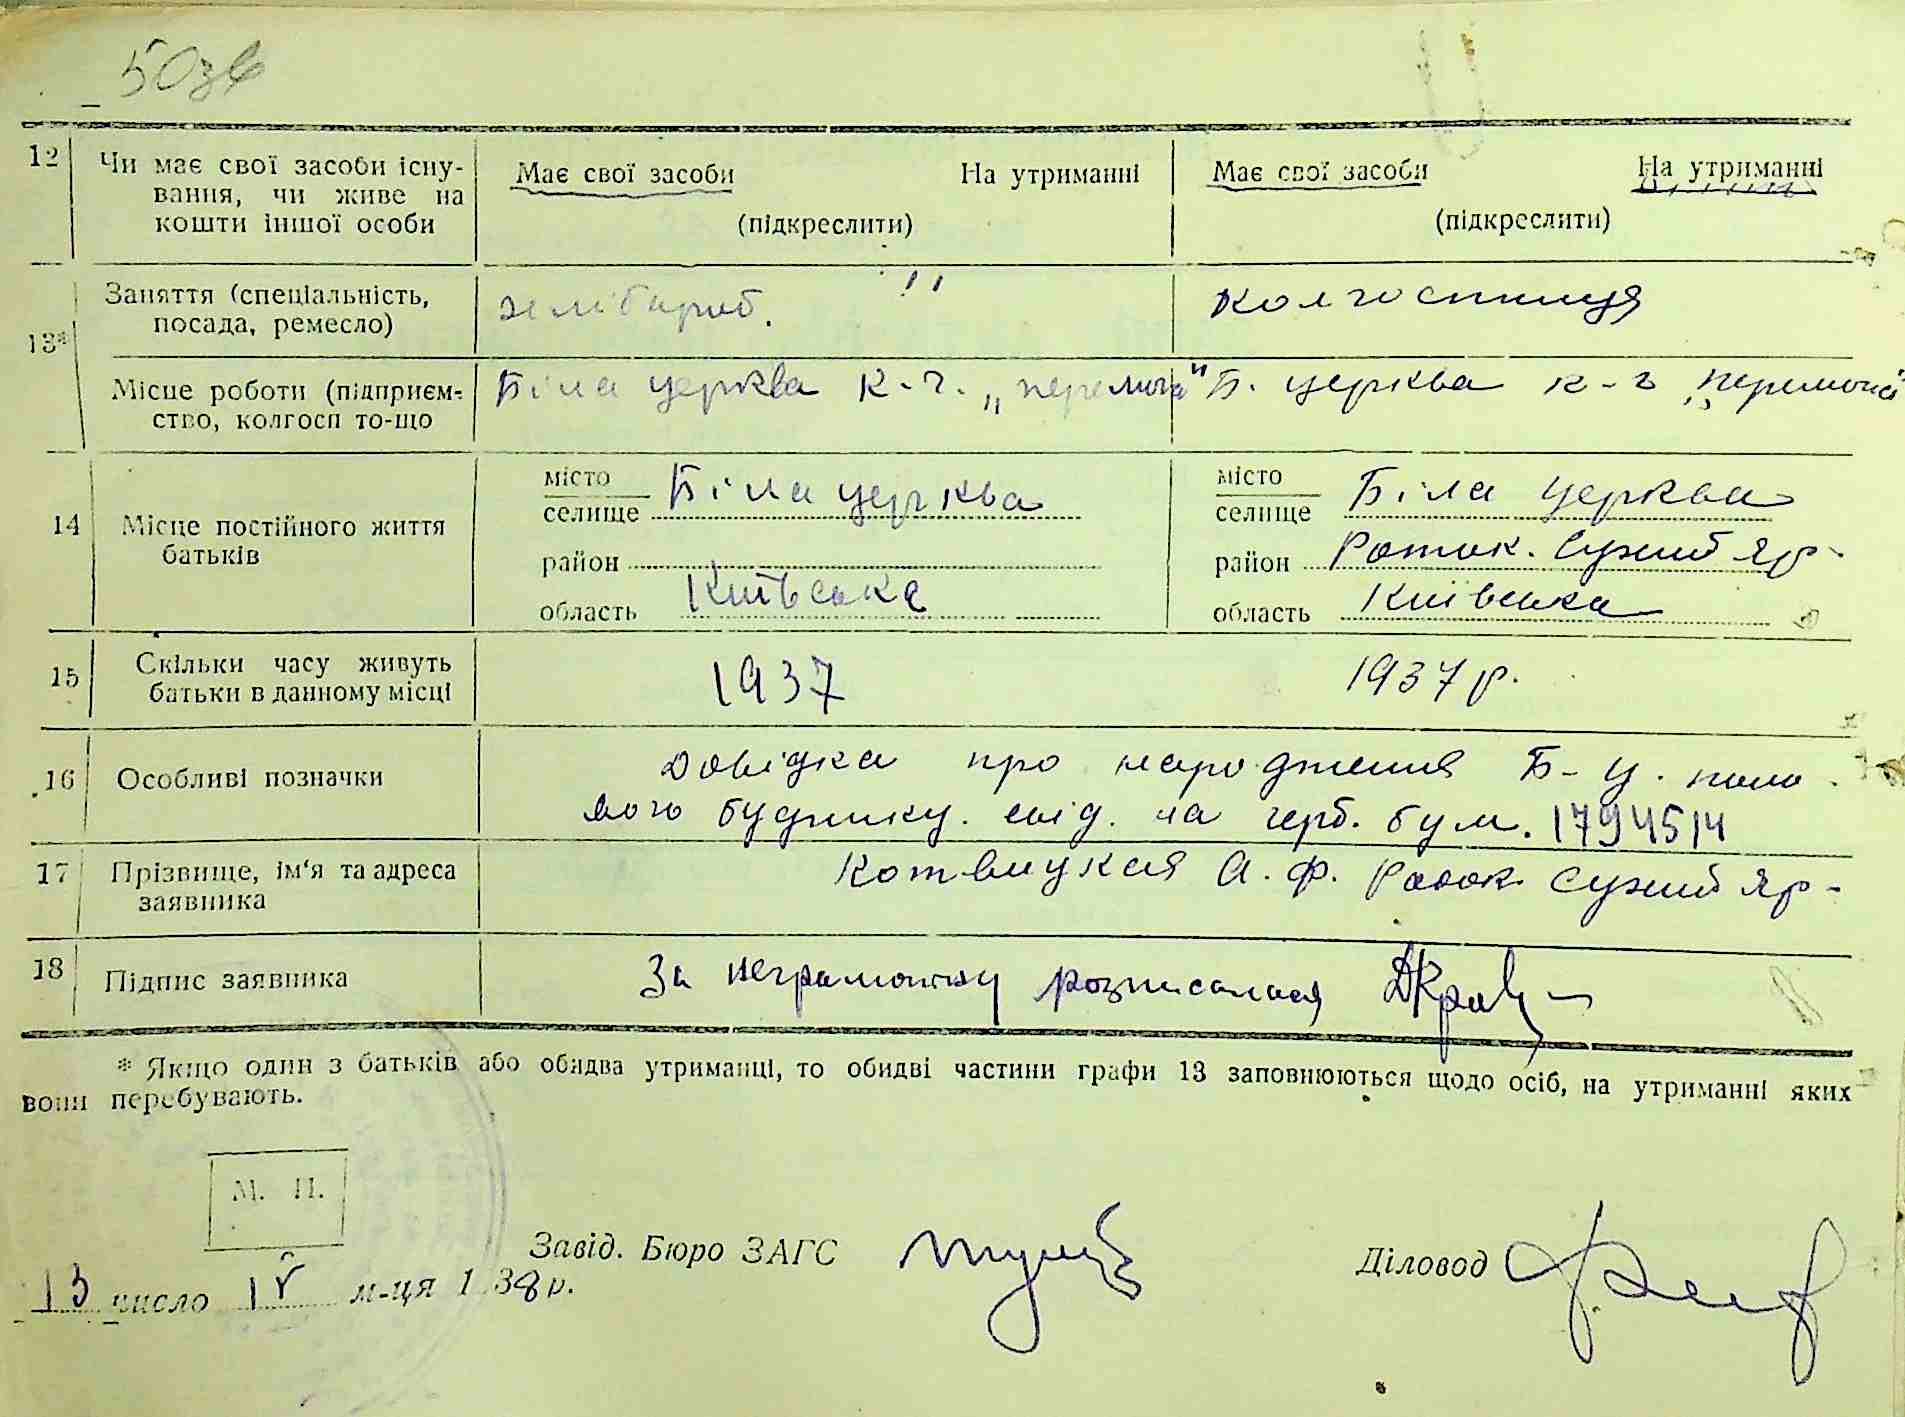 50зв
12 Чи має свої засоби існу- Має свої засоби На утриманні Має свої засоби На утриманні
вання, чи живе на
кошти іншої особи (підкреслити) (підкреслити)
13* Заняття (спеціальність, хлібороб. колгоспниця
посада, ремесло)
Місце роботи (підприєм- Біла церква к-г. „перемога" Б. церква к-г „перемога"
ство, колгосп то-що
14 Місце постійного життя місто Біла церква місто Біла церква
батьків селище селище
район район Роток. Сухий яр-
область Київська область Київська
15 Скільки часу живуть 1937 1937 р.
батьки в данному місці
16 Особливі позначки Довідка про народження Б-Ц. поло
вого будинку. свід. на герб. бум. 1794514
17 Прізвище, ім'я та адреса А. Ф. Роток Сухий яр-
заявника
18 Підпис заявника За неграмотну розписалася
* Якщо один з батьків або обидва утриманці, то обидві частини графи 13 заповнюються щодо осіб, на утриманні яких
вони перебувають.
М. П.
Завід. Бюро ЗАГС Діловод
13 число IV м-ця 1938 р.